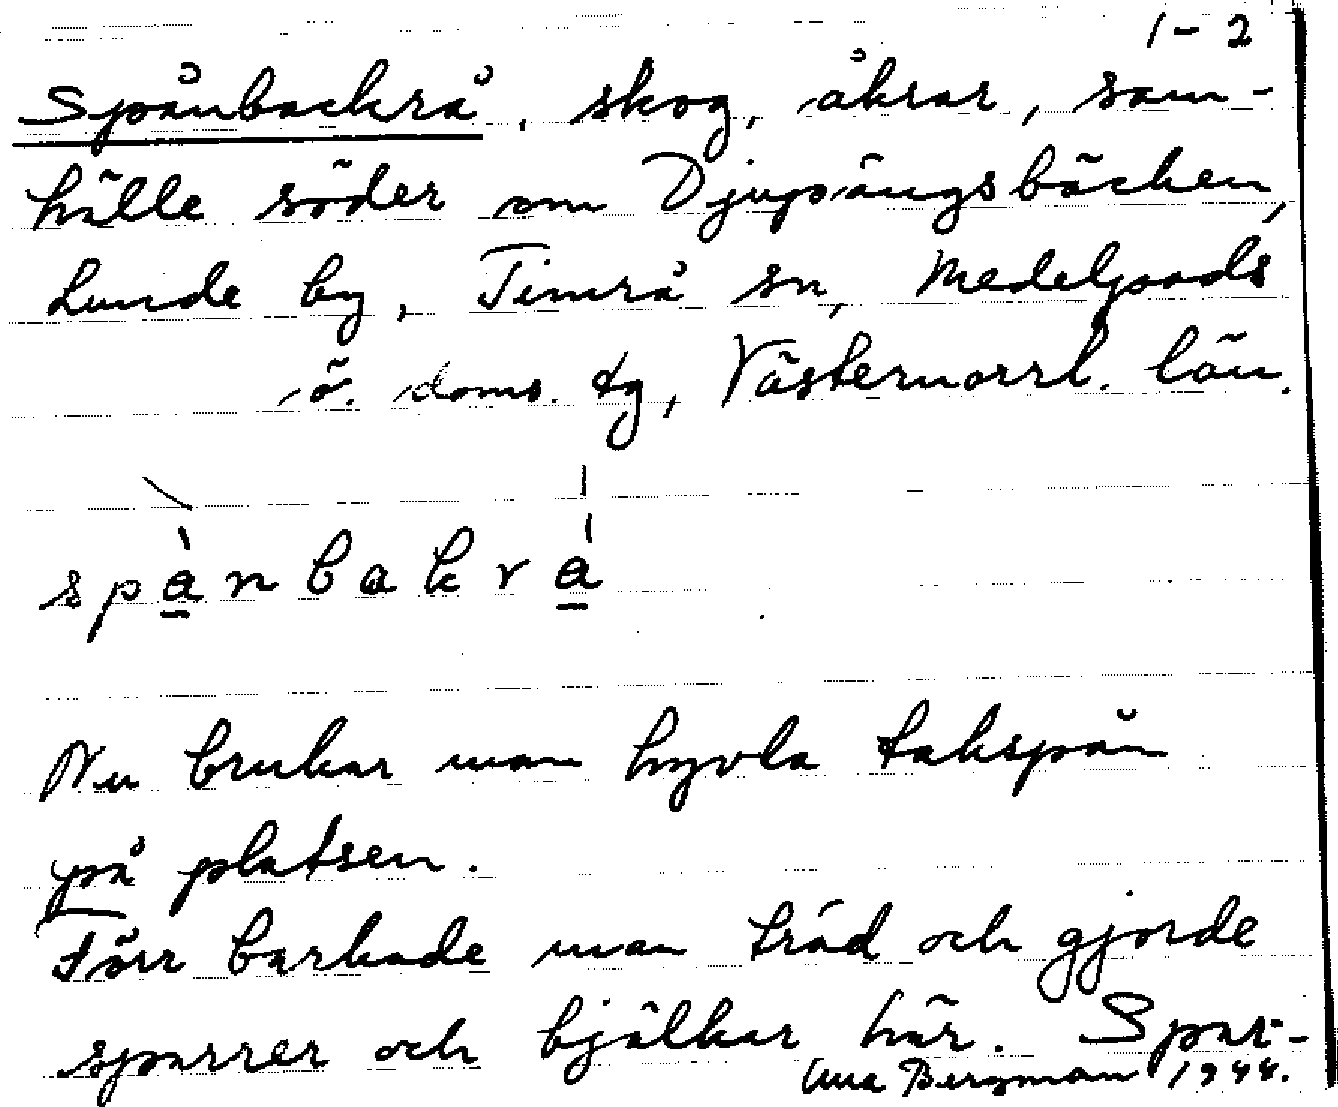 1-2
Spånbackrå, skog, åkrar, sam-
hälle söder om Djupängsbäcken,
Lunde by, Timrå sn, Medelpads
ö. doms. tg, Västernorrl. län.
spànbakrá
Nu brukar man hyvla takspån
på platsen.
Förr barkade man träd och gjorde
sparrer och bjälkar här. Spar-
Una Bergman 1944.